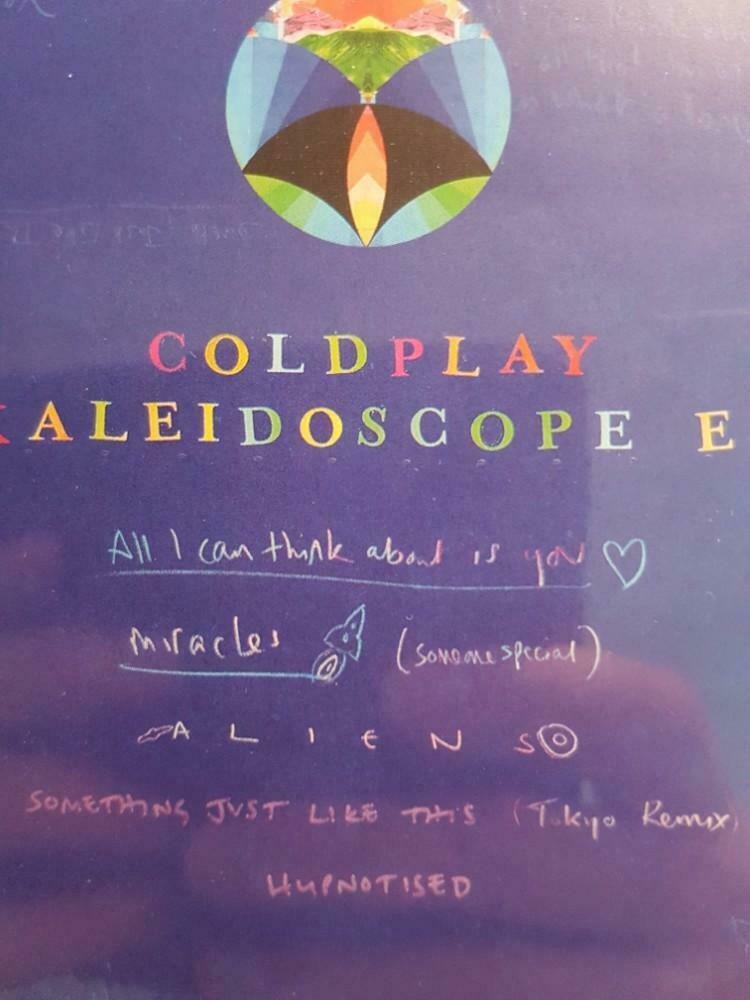 COLDPLAY
KALEIDOSCOPE E
All I can think about is you
miracles (someone special)
ALIENS
SOMETHING JUST LIKE THIS (Tokyo Remix)
HYPNOTISED